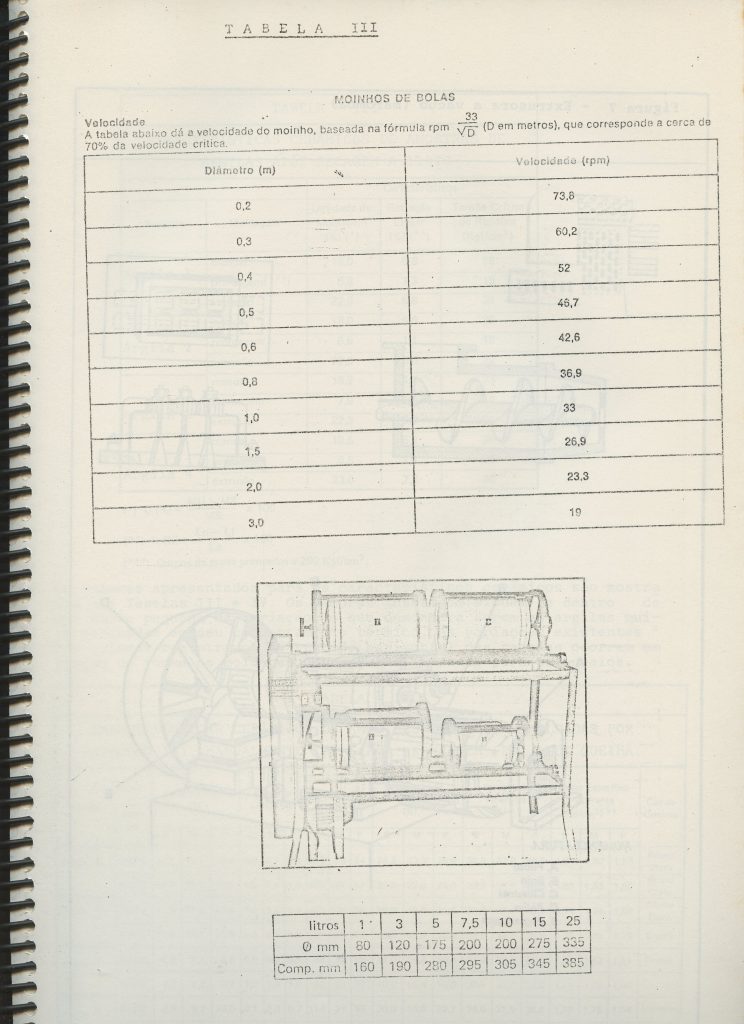 TABELA III
MOINHOS DE BOLAS
Velocidade
A tabela abaixo dá a velocidade do moinho, baseada na fórmula rpm 33/√D (D em metros), que corresponde a cerca de
70% da velocidade crítica.
Diâmetro (m) Velocidade (rpm)
0,2 73,8
0,3 60,2
0,4 52
0,5 46,7
0,6 42,6
0,8 36,9
1,0 33
1,5 26,9
2,0 23,3
3,0 19
litros 1 3 5 7,5 10 15 25
Ø mm 80 120 175 200 200 275 335
Comp. mm 160 190 280 295 305 345 385